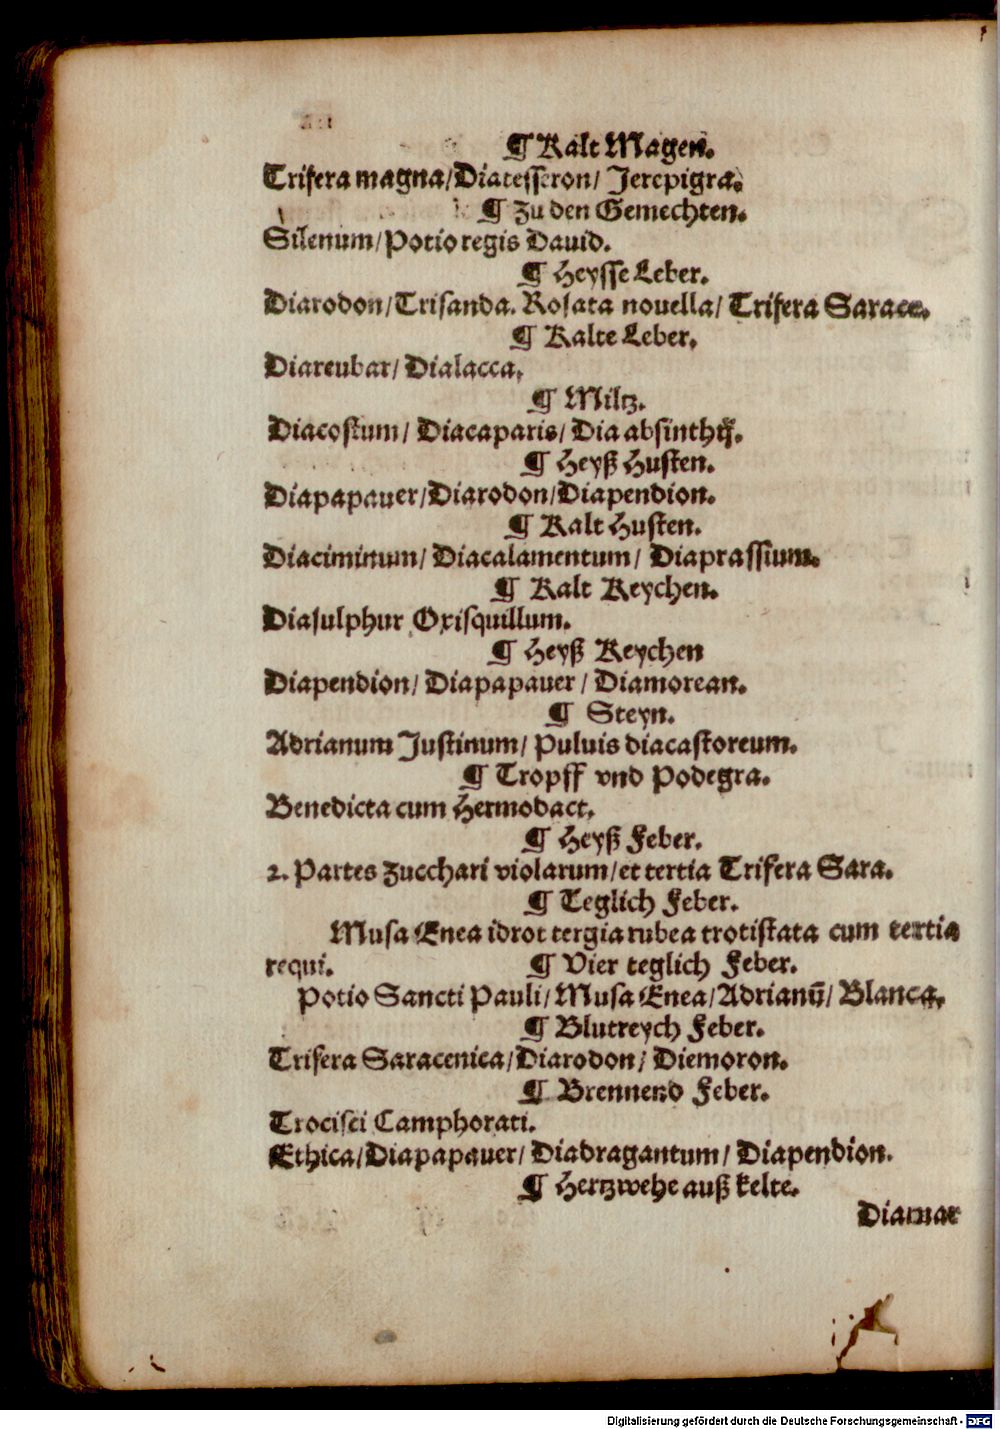 ¶ Kalt Magen.
Trifera magna/Diatesseron/ Jerepigra.
¶ Zu den Gemechten.
Silenum/Potio regis Dauid.
¶ Heysse Leber.
Diarodon/Trisanda. Rosata nouella/ Trifera Sarace.
¶ Kalte Leber.
Diareubar/ Dialacca.
¶ Miltz.
Diacostum/ Diacaparis/ Dia absinthij.
¶ Heyß Husten.
Diapapauer/Diarodon/Diapendion.
¶ Kalt Husten.
Diaciminum/ Diacalamentum/ Diaprassium.
¶ Kalt Keychen.
Diasulphur Oxisquillum.
¶ Heyß Keychen
Diapendion/ Diapapauer / Diamorean.
¶ Steyn.
Adrianum Justinum/ Puluis diacastoreum.
¶ Tropff vnd Podegra.
Benedicta cum Hermodact.
¶ Heyß Feber.
2. Partes Zucchari violarum/et tertia Trifera Sara.
¶ Teglich Feber.
Musa Enea idrot tergia rubea trotistata cum tertia
requi. ¶ Vier teglich Feber.
Potio Sancti Pauli/Musa Enea/Adrianū/ Blanca.
¶ Blutreych Feber.
Trifera Saracenica/Diarodon/ Diemoron.
¶ Brennend Feber.
Trocisci Camphorati.
Ethica/Diapapauer/ Diadragantum/ Diapendion.
¶ Hertzwehe auß kelte.
Diamar
Digitalisierung gefördert durch die Deutsche Forschungsgemeinschaft - DFG